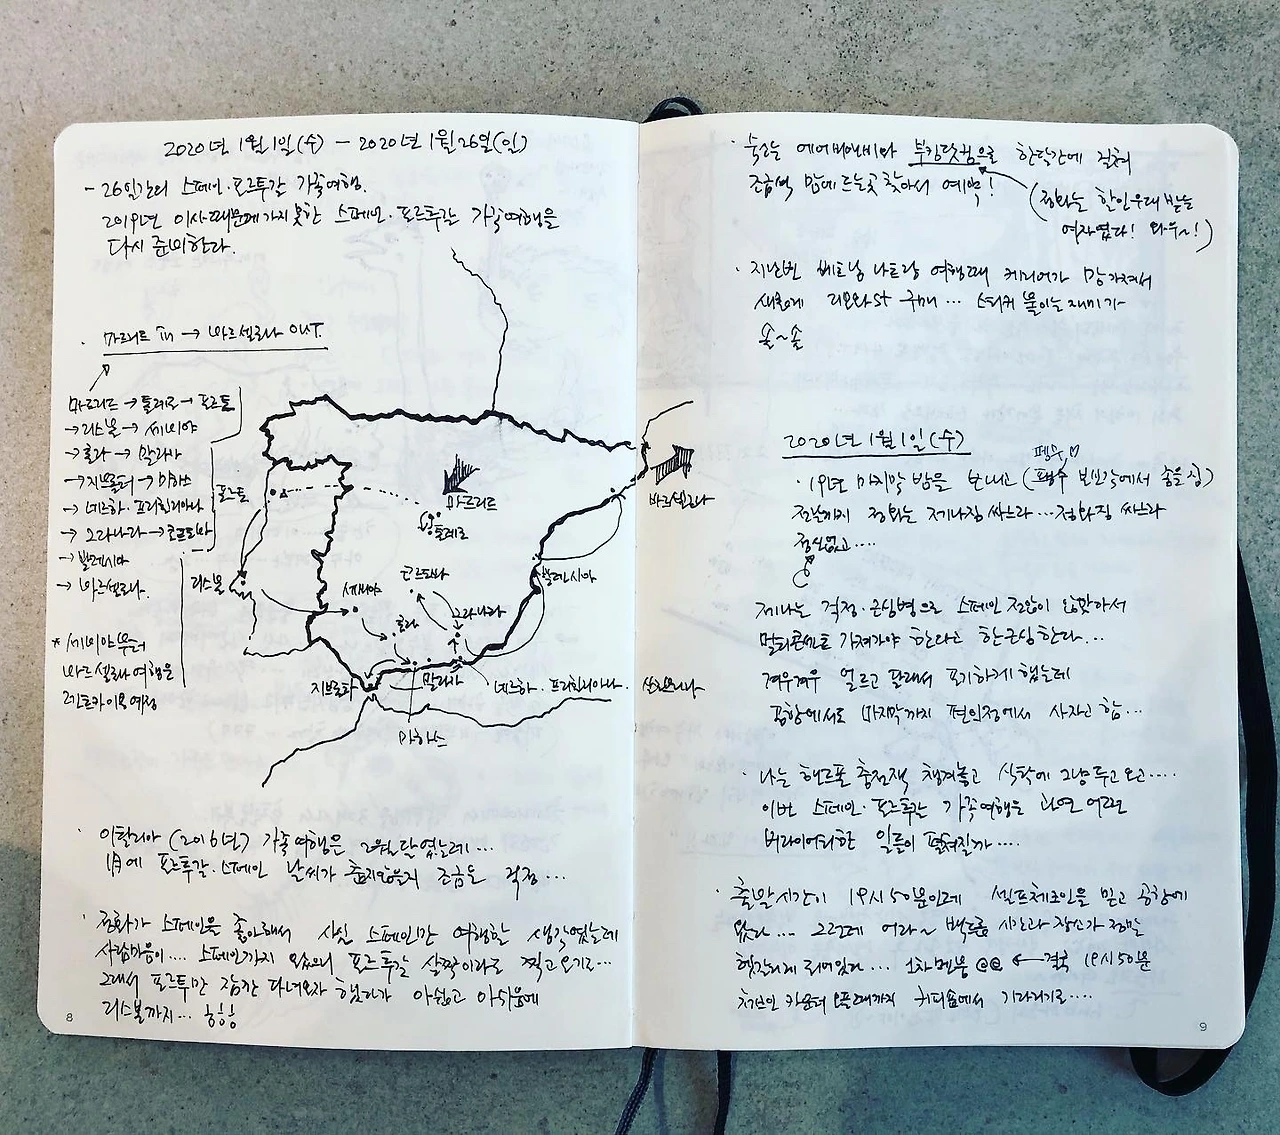 2020년 1월 1일(수) - 2020년 1월 26일(일)
- 26일간의 스페인·포르투갈 가족여행.
2019년 이사때문에 가지 못한 스페인·포르투갈 가족여행을
다시 준비한다.
· 마드리드 in → 바르셀로나 OUT.
마드리드 → 톨레도 → 포르투
→ 리스본 → 세비야
→ 론다 → 말라가
→ 지브롤터 → 미하스
→ 네르하·프리힐리아나
→ 그라나다 → 코르도바
→ 발렌시아
→ 바르셀로나.
* 세비야부터
바르셀로나 여행은
렌트카 이용예정
포르투
마드리드
톨레도
리스본
세비야
코르도바
발렌시아
그라나다
론다
지브롤터
말라가
네르하·프리힐리아나·
미하스
· 이탈리아 (2016년) 가족여행은 2월달이었는데...
1月에 포르투갈·스페인 날씨가 춥지않을지 조금은 걱정...
· 정화가 스페인은 좋아해서 사실 스페인만 여행할 생각이었는데
사람마음이.... 스페인까지 왔으니 포르투갈 살짝이라도 찍고오기로...
그래서 포르투만 잠깐 다녀오자 했다가 아쉽고 아쉬움에
리스본까지... 흐흐흐
8
· 숙소는 에어비앤비와 부킹닷컴으로 한달간에 걸쳐
조금씩 맘에 드는곳 찾아서 예약!
(정화는 할인우대 받는
여자였다! 와우~!)
· 지난번 베트남 나트랑 여행때 캐리어가 망가져서
새롭게 리모와 구매... 스티커 붙이는 재미가
쏠~쏠
바르셀로나
2020년 1월 1일(수)
펭수♡
· 19년 마지막 밤을 보내고 (보신각에서 송출식)
전날까지 정화는 제나짐 싸느라... 정화짐 싸느라
정신없고....
제나는 걱정·근심병으로 스페인 전압이 안맞아서
멀티콘센트 가져가야 한다고 한근심한다...
겨우겨우 얼르고 달래서 포기하게 했는데
공항에서도 마지막까지 편의점에서 사자고 함...
· 나는 핸드폰 충전잭 챙겨놓고 식탁에 그냥 두고 오고....
이번 스페인·포르투갈 가족여행은 과연 어떤
버라이어티한 일들이 펼쳐질까....
· 출발시간이 19시 50분인데 셀프체크인을 믿고 공항에
왔다.... 그런데 어라~ 백드롭 시간과 장소가 정말
헷갈리게 되어있다... 1차 멘붕 @@ ← 결국 19시 50분
체크인 카운터 오픈때까지 커피숍에서 기다리기로....
9